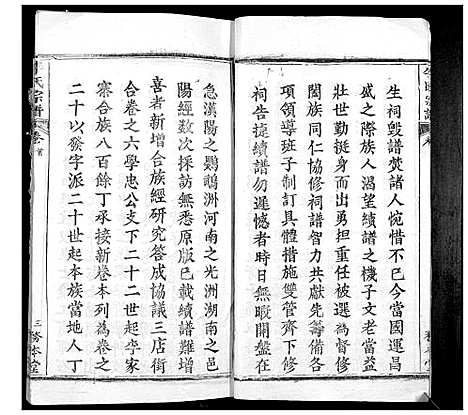 生祠毀譜焚諸人惋惜不已今當國運昌
盛之際族人渴望續譜之機子文老當益
壯世勤挺身而出勇担重任愿為督修
閤族同仁協修祠譜智力共獻先籌備各
項領導班子制訂具體措施雙管齊下修
祠告㨗續譜勿遲憾者日無暇閒盤在
急漢陽之鸚鵡洲河南之光洲湖南之邑
陽經數次採訪無悉原版已載續譜難增
喜者新增合族經研究答成協議三店街
合卷之六學忠公支下二十二世起李家
寨合族八百餘丁承接新卷本列為卷之
二十以發字派二十世起本族當地人丁
氏宗譜
卷首
三
務本堂
宗譜